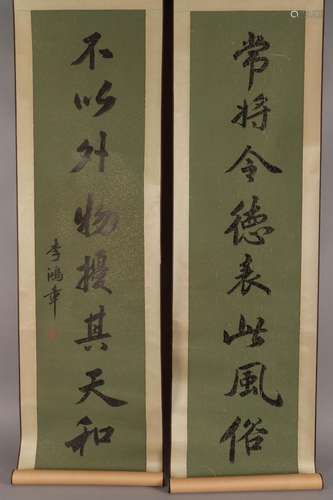 常將令德表此風俗
不以外物擾其天和
李鴻章